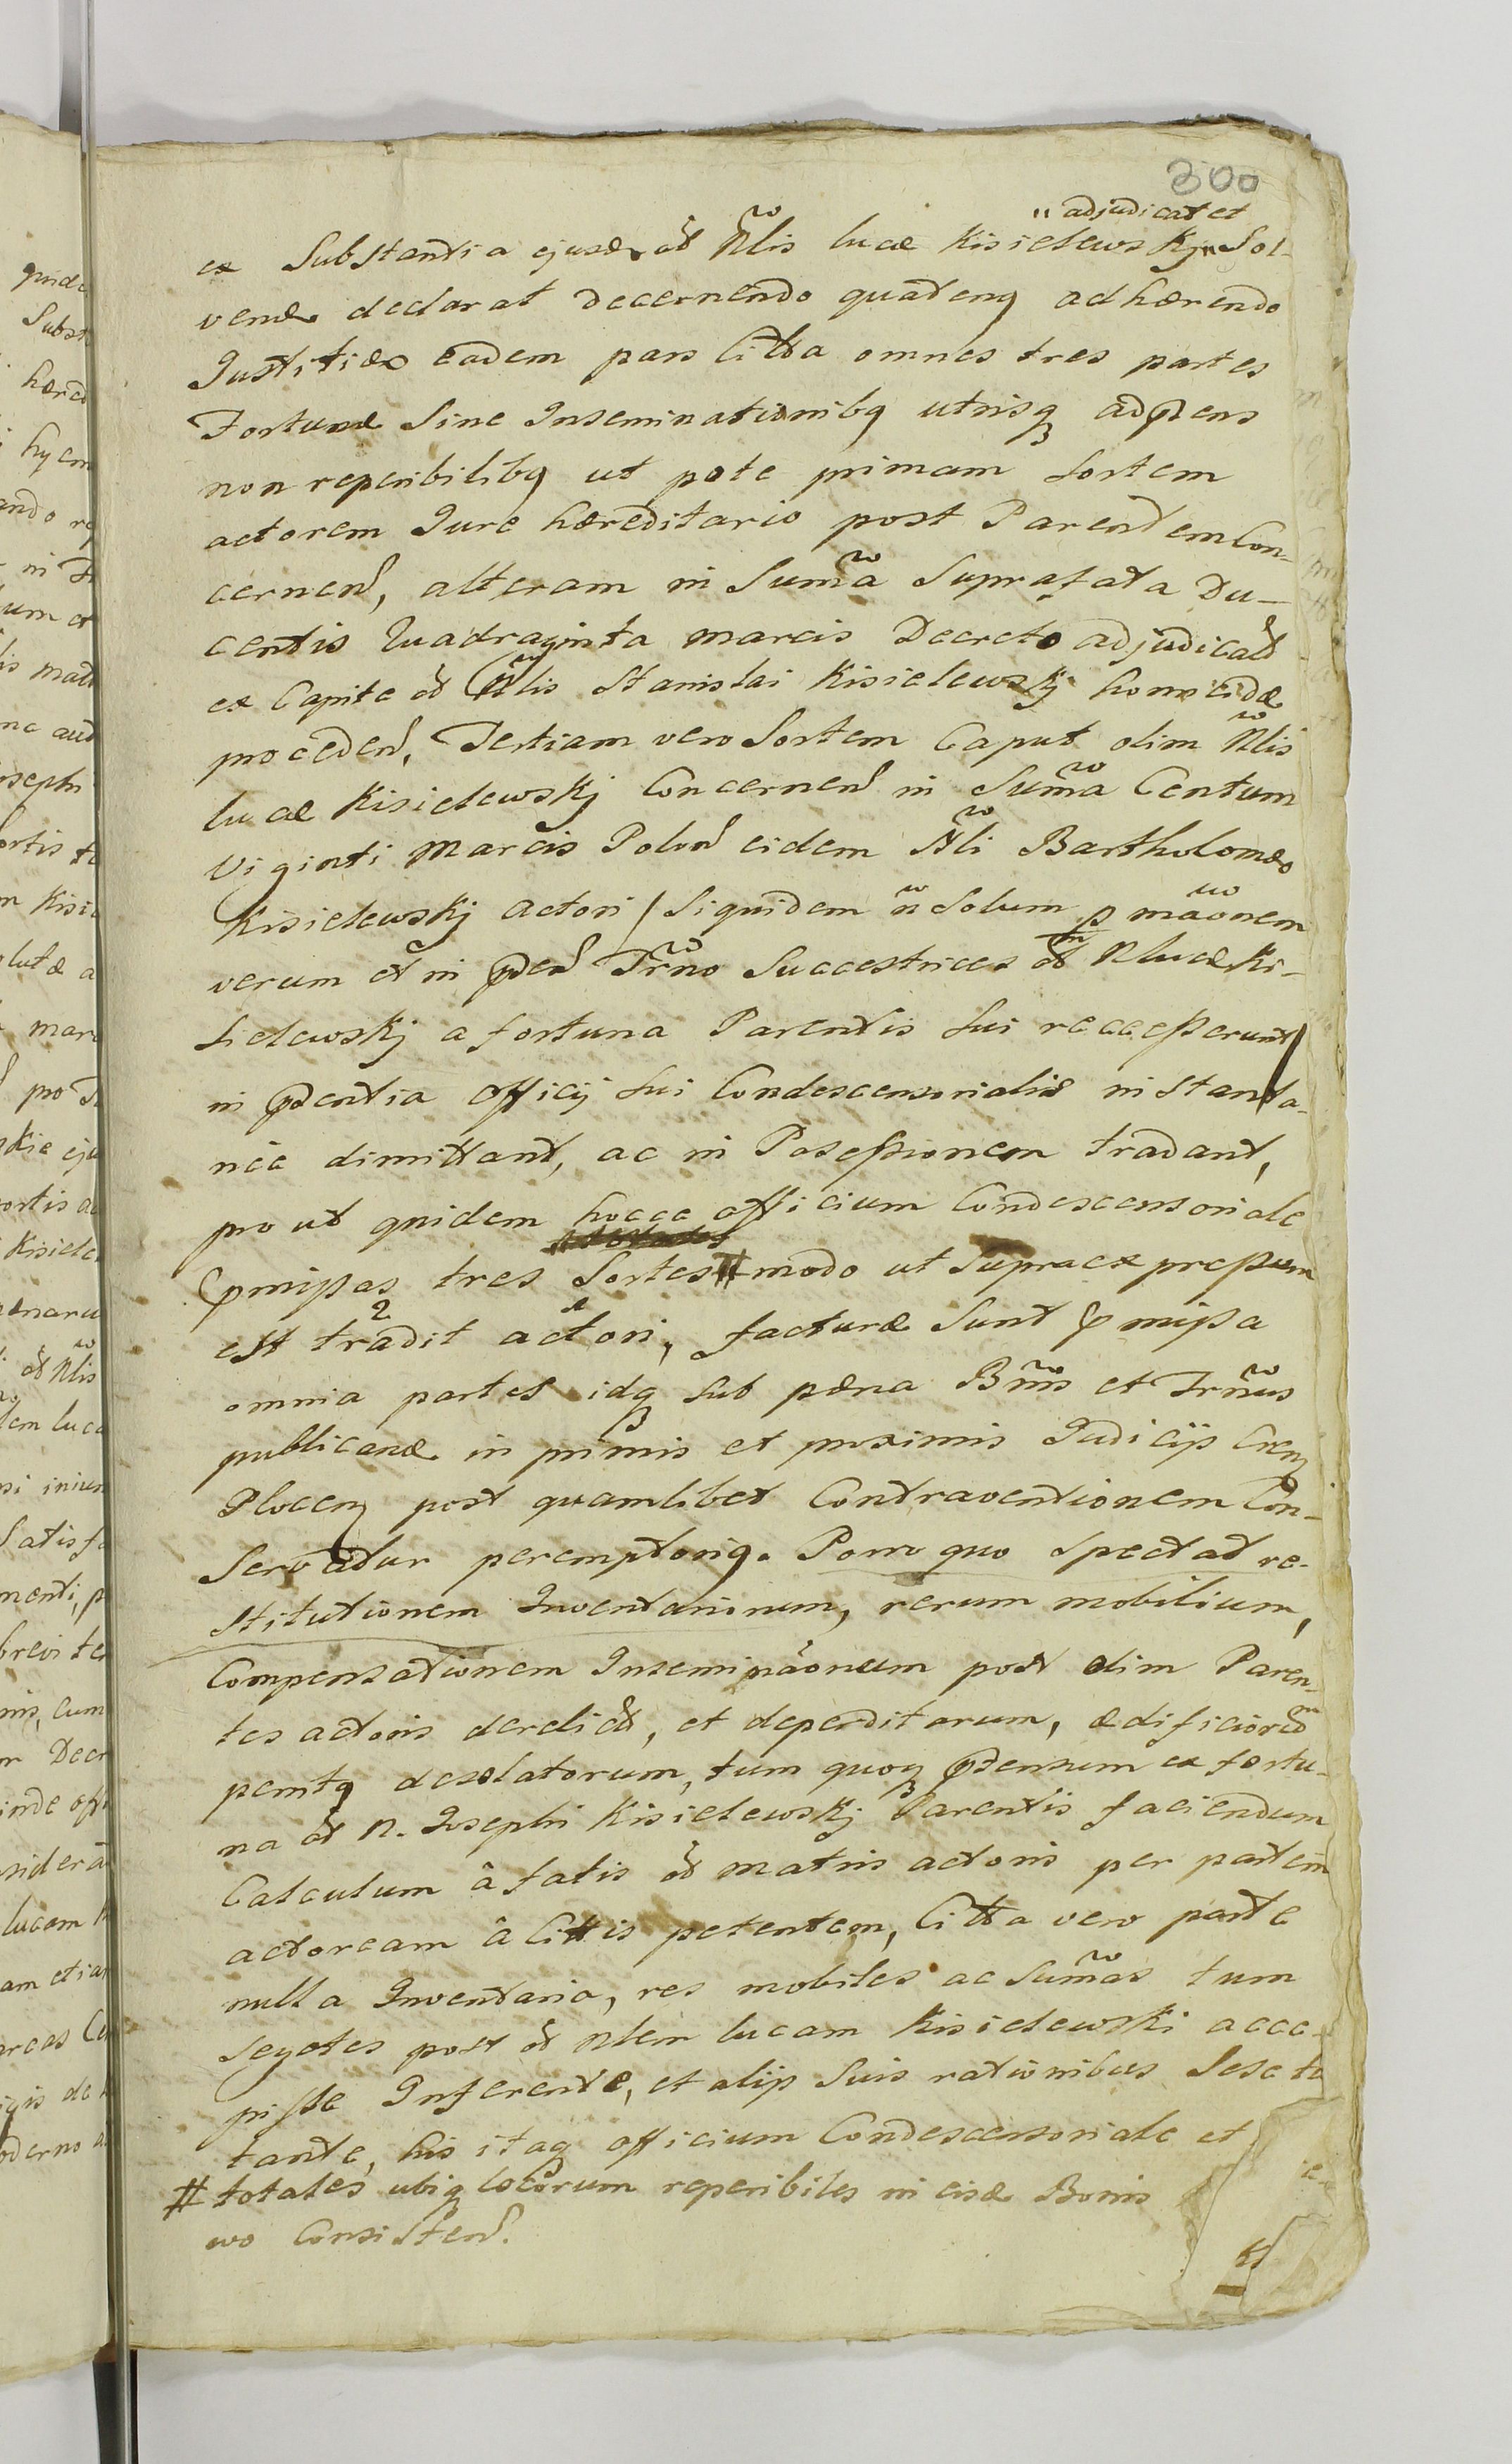 300
" adjudicat et
ex Substantia ejusd. od Nlis lucæ Kisielewskj " Sol-
vend. declarat decernendo quatenq adhærendo
Justitiæ eadem pars Citta omnes tres partes
Fortunæ Sine Inseminationibq utrisq adpens
non reperibilibq ut pote primam Sortem
actorem Jure hæreditario post Parentem Con-
cernen, alteram in Suma Suprafata Du-
centis Quadraginta marcis Decreto adjudicat
ex Capite od Nlis Stanislai Kisielewskj homicidæ
proceden, Tertiam vero Sortem Caput olim Nlis
lucæ Kisielewskj Concernen in Suma Centum
Viginti Marcis Polon eidem Nli Bartholomæo
Kisielewskj Actori / Siquidem n Solum p maonem
verum et in pden Trno Succestrices od N lucæ Ki-
sielewskj a fortuna Parentis Sui recesserunt /
in pdentia Officij Sui Condescensorialis instanta-
nèe dimittant, ac in Possessionem tradant,
pro ut quidem hocce officium Condescensoriale
pmissas tres Sortes # modo ut Supra expressum
est tradit actori, facturæ Sunt pmissa
omnia partes idq Sub pæna Bnis et Irnus
publicanæ in primis et proximis Judicijs Cren
Plocen post quamlibet Contraventionem Con-
Servatur peremptoriq. Porro quo Spectat re-
Stitutionem Inventariorum, rerum mobilium,
Compensationem Inseminaonum post olim Paren-
tes actoris derelict, et deperditorum, ædificiorum
penitq desolatorum, tum quoq pdensum ex fortu-
na od N. Josephi Kisielewskj Parentis faciendum
Calculum â fatis od matris actoris per partem
actoream â Cittis petentem, Citta vero parte
nulla Inventaria, res mobiles ac Sumas tum
Segetes post od Nlem lucam Kisielewski acce-
pisse Inferente, et alijs Suis rationibus Sese tu
tante, his itaq officium Condescensoriale et
# totales ubiq locorum reperibiles in eisd Bonis
wo Consisten.